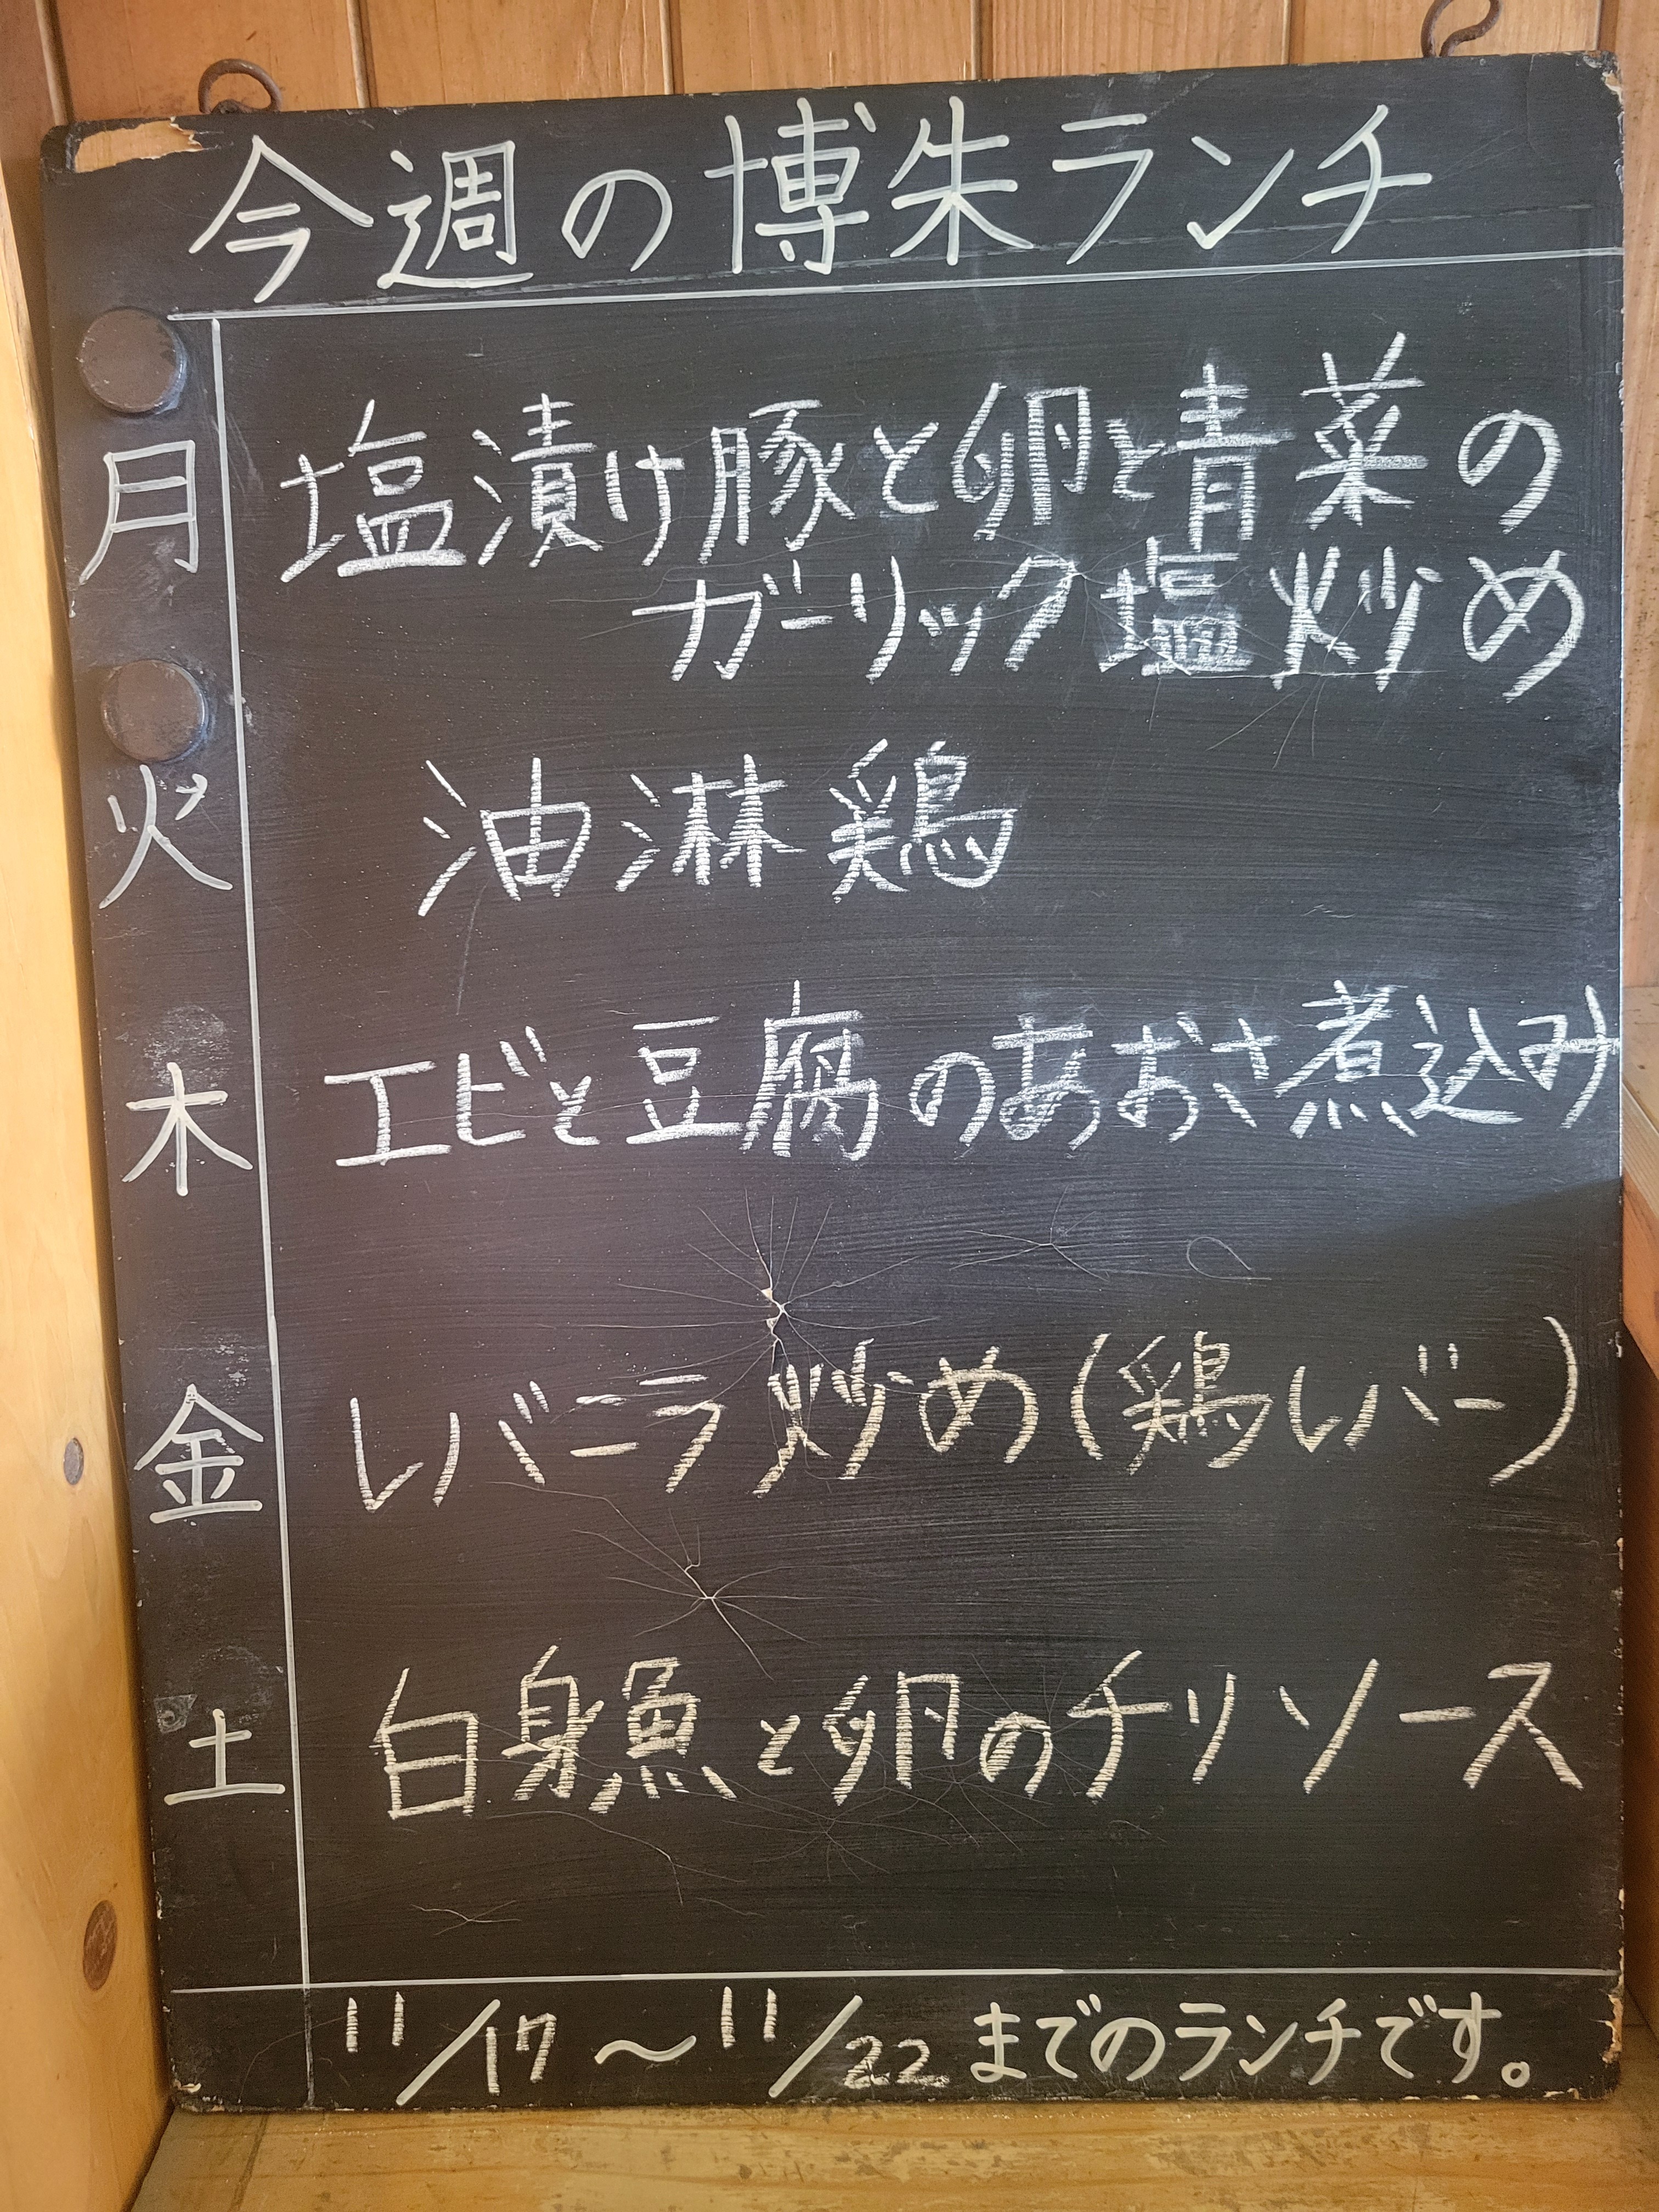 今週の博朱ランチ
月 塩漬け豚と卵と青菜の
ガーリック塩炒め
火 油淋鶏
木 エビと豆腐のあおさ煮込み
金 レバニラ炒め(鶏レバー)
土 白身魚と卵のチリソース
11/17〜11/22までのランチです。